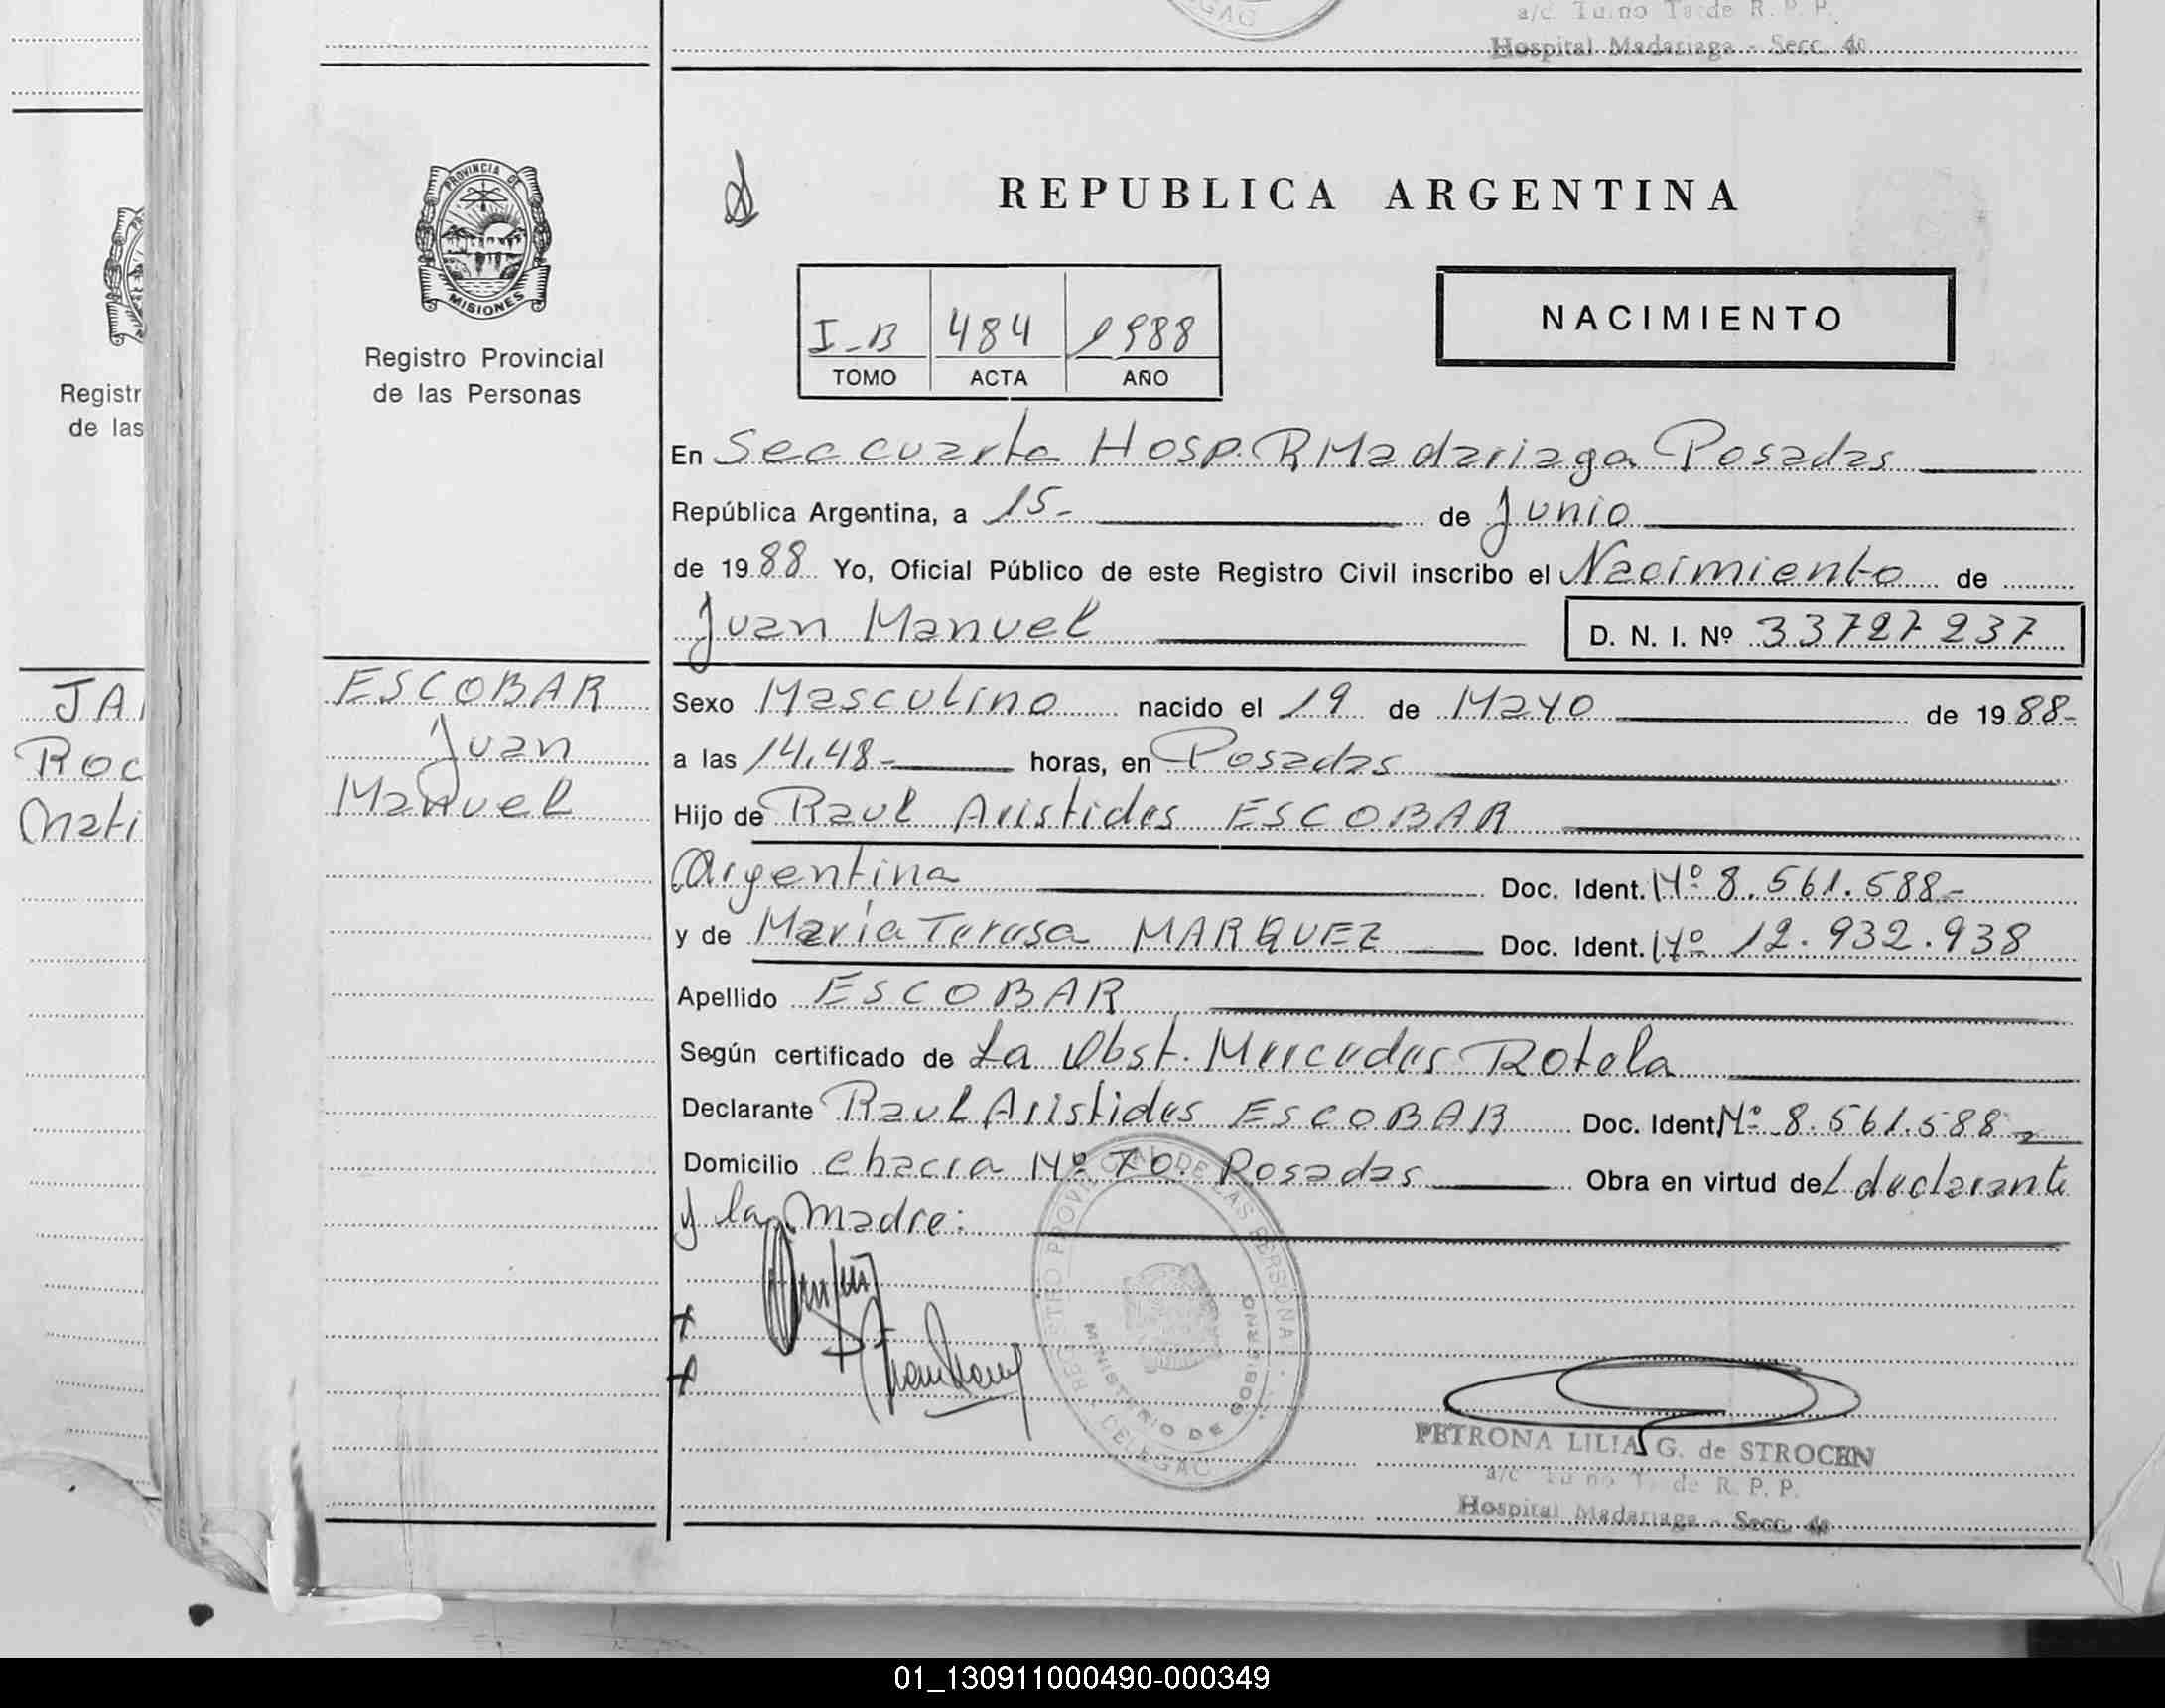 a/c Turno Tarde R. P. P.
Hospital Madariaga - Secc. 4a
PROVINCIA DE
MISIONES
Registro Provincial
de las Personas
Registr
de las
REPUBLICA ARGENTINA
NACIMIENTO
I-B 484 1988
TOMO ACTA AÑO
En Sec cuarta Hosp. R Madariaga Posadas
República Argentina, a 15- de Junio
de 1988 Yo, Oficial Público de este Registro Civil inscribo el Nacimiento de
Juan Manuel D. N. I. Nº 33727237
JA
Roc
Mati
ESCOBAR
Juan
Manuel
Sexo Masculino nacido el 19 de Mayo de 1988-
a las 14,48- horas, en Posadas
Hijo de Raul Aristides ESCOBAR
Argentina Doc. Ident. Nº 8.561.588-
y de Maria Teresa MARQUEZ Doc. Ident. Nº 12.932.938
Apellido ESCOBAR
Según certificado de La Obst. Mercedes Rotela
Declarante Raul Aristides ESCOBAR Doc. Ident Nº 8.561.588-
Domicilio chacra Nº 70. Posadas Obra en virtud del declarante
y la madre:
REGISTRO PROVINCIAL DE LAS PERSONAS
MINISTERIO DE GOBIERNO
PETRONA LILIA G. de STROCEN
a/c Turno Tarde R. P. P.
Hospital Madariaga - Secc. 4a
01_130911000490-000349